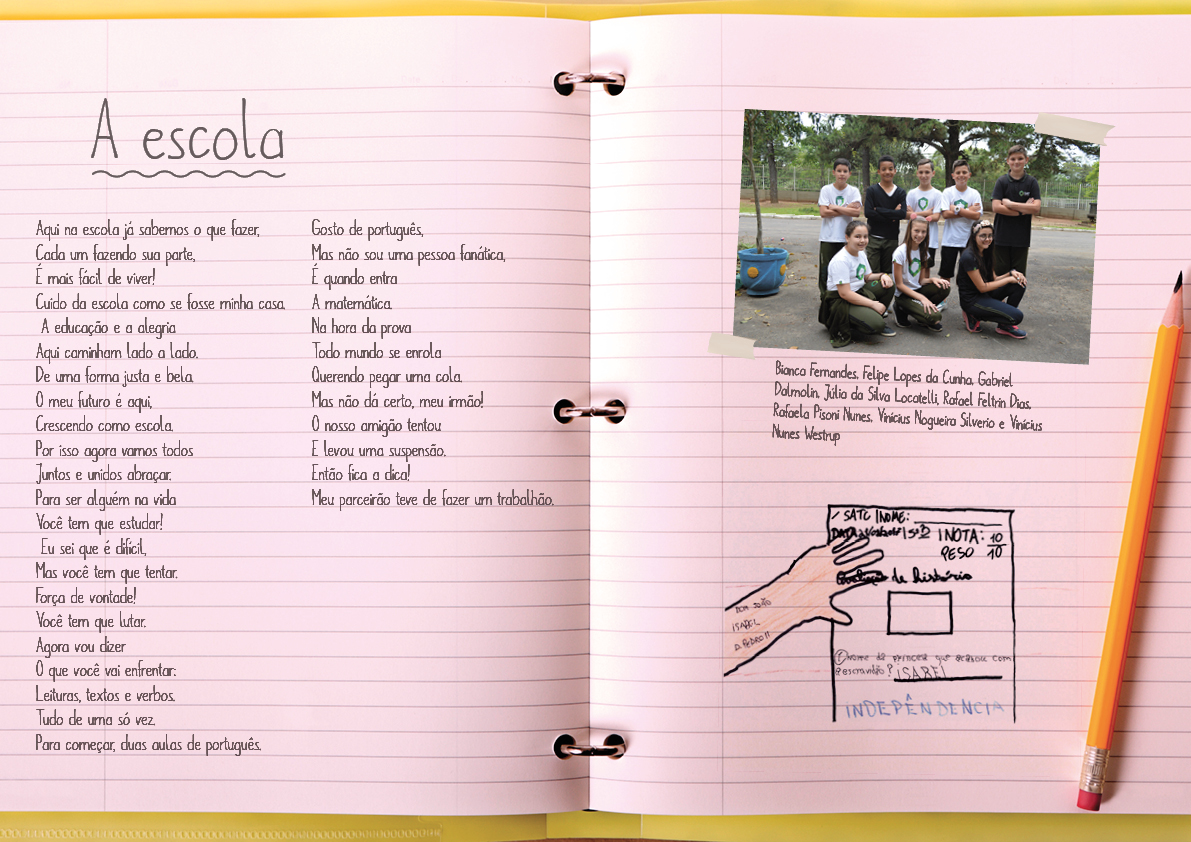 A escola
Aqui na escola já sabemos o que fazer,
Cada um fazendo sua parte,
É mais fácil de viver!
Cuido da escola como se fosse minha casa.
A educação e a alegria
Aqui caminham lado a lado.
De uma forma justa e bela.
O meu futuro é aqui,
Crescendo como escola.
Por isso agora vamos todos
Juntos e unidos abraçar.
Para ser alguém na vida
Você tem que estudar!
Eu sei que é difícil,
Mas você tem que tentar.
Força de vontade!
Você tem que lutar.
Agora vou dizer
O que você vai enfrentar:
Leituras, textos e verbos.
Tudo de uma só vez.
Para começar, duas aulas de português.
Gosto de português,
Mas não sou uma pessoa fanática,
É quando entra
A matemática.
Na hora da prova
Todo mundo se enrola
Querendo pegar uma cola.
Mas não dá certo, meu irmão!
O nosso amigão tentou
E levou uma suspensão.
Então fica a dica!
Meu parceirão teve de fazer um trabalhão.
Bianca Fernandes, Felipe Lopes da Cunha, Gabriel
Dalmolin, Júlia da Silva Locatelli, Rafael Feltrin Dias,
Rafaela Pisoni Nunes, Vinícius Nogueira Silverio e Vinícius
Nunes Westrup
SATC NOME:
DATA
NOTA: 10
PESO 10
de história
DOM JOÃO
ISABEL
D. PEDRO II
① nome da princesa que acabou com
a escravidão? ISABEL
INDEPÊNDENCIA